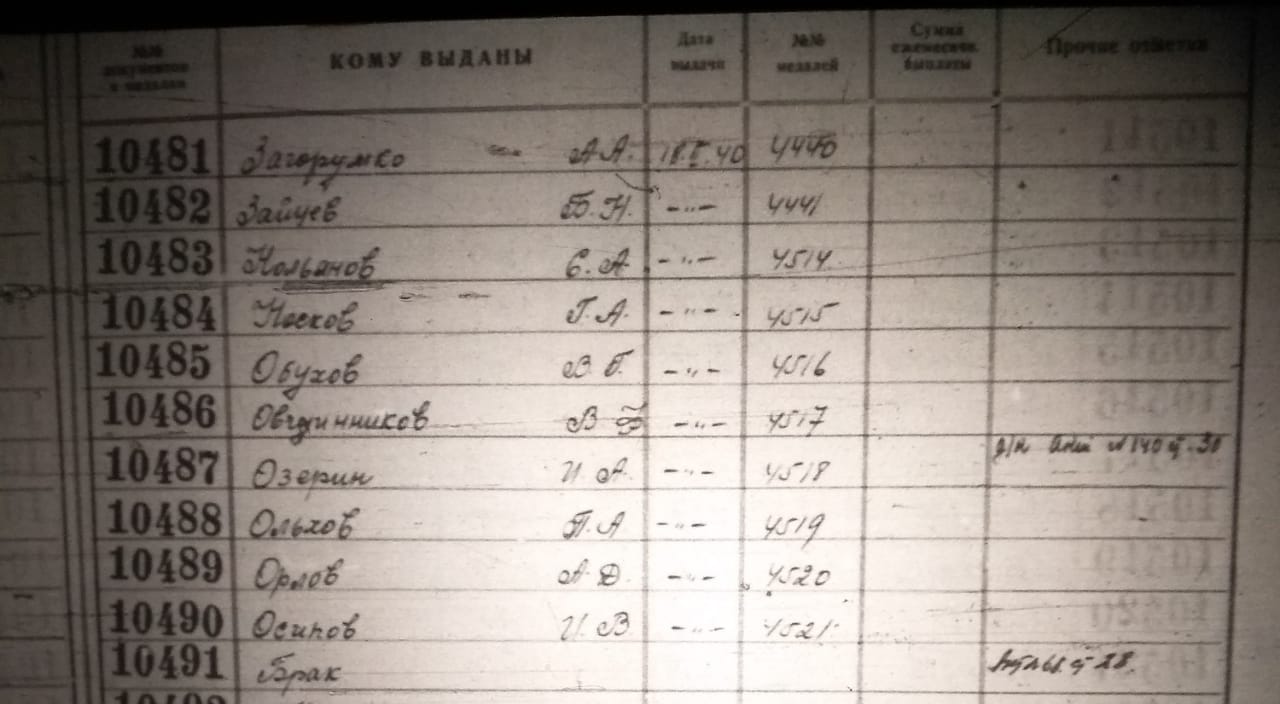 №№ документов и медалей КОМУ ВЫДАНЫ Дата выдачи №№ медалей Сумма ежемесячн. выплаты Прочие отметки
10481 Загорулько А А. 4440
10482 Зайцев Б. Н. -"- 4441
10483 Нольянов С. А. -"- 4514
10484 Носков Г. А. -"- 4515
10485 Обухов В Г. -"- 4516
10486 Овчинников В Б -"- 4517
10487 Озерин И А. -"- 4518
10488 Ольхов П. А -"- 4519
10489 Орлов А. Д. -"- 4520
10490 Осипов И В -"- 4521
10491 Брак